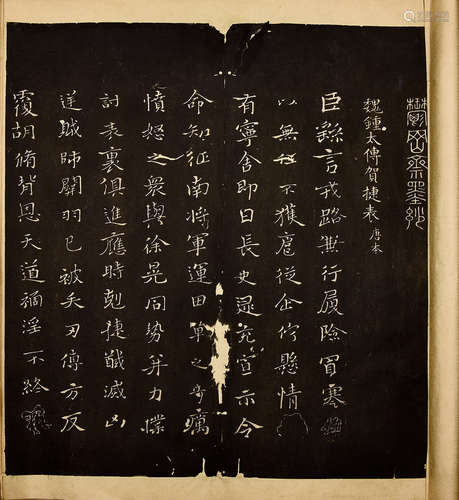 鬱岡齋墨妙
魏鍾太傅賀捷表 唐本
臣繇言戎路兼行履險冒寒
以無不獲扈從企佇懸情
有寧舍即日長史逯充宣示令
命知征南將軍運田單之奇厲
憤怒之眾與徐晃同勢并力撲
討表裏俱進應時剋捷馘滅凶
逆賊帥關羽已被矢刃傅方反
覆胡脩背恩天道禍淫不終